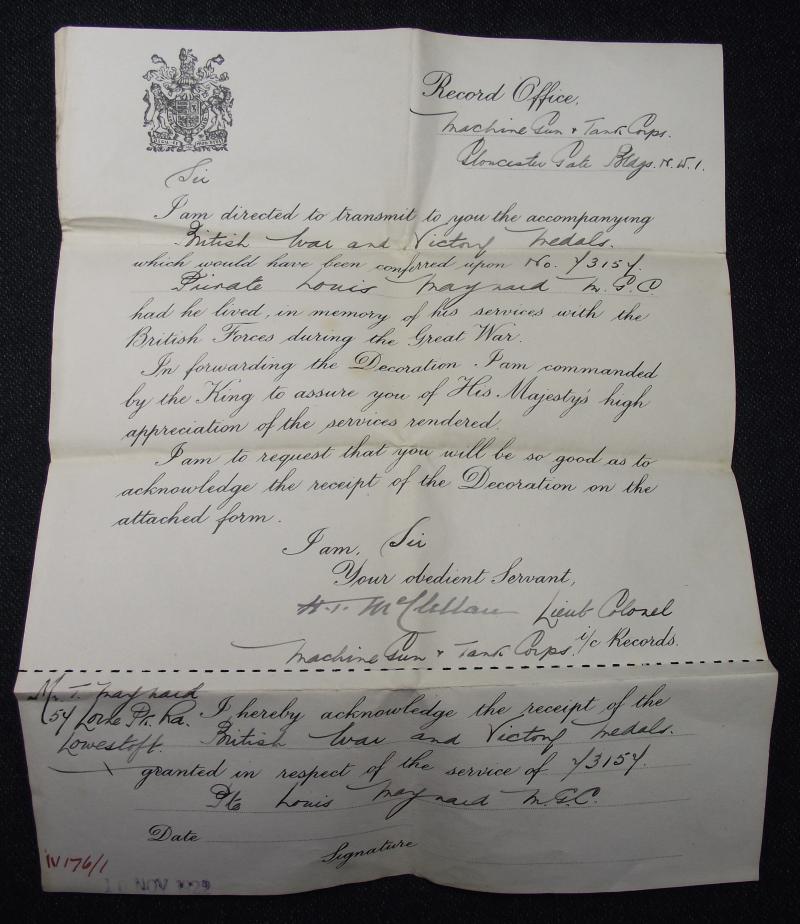 DIEU ET MON DROIT
Record Office,
Machine Gun & Tank Corps.
Gloucester Gate Bldgs. N.W.1.
Sir
I am directed to transmit to you the accompanying
British War and Victory Medals.
which would have been conferred upon No.
Private Louis Maynard M.G.C.
had he lived, in memory of his services with the
British Forces during the Great War.
In forwarding the Decoration. I am commanded
by the King to assure you of His Majesty's high
appreciation of the services rendered.
I am to request that you will be so good as to
acknowledge the receipt of the Decoration on the
attached form.
I am, Sir
Your obedient Servant,
H.T. McClellan Lieut Colonel
i/c Records.
Machine Gun & Tank Corps.
Mr. T. Maynard
Lorne Pk. Rd.
Lowestoft.
I hereby acknowledge the receipt of the
British War and Victory Medals.
granted in respect of the service of
Pte Louis Maynard M.G.C.
Date
Signature
IV 176/1